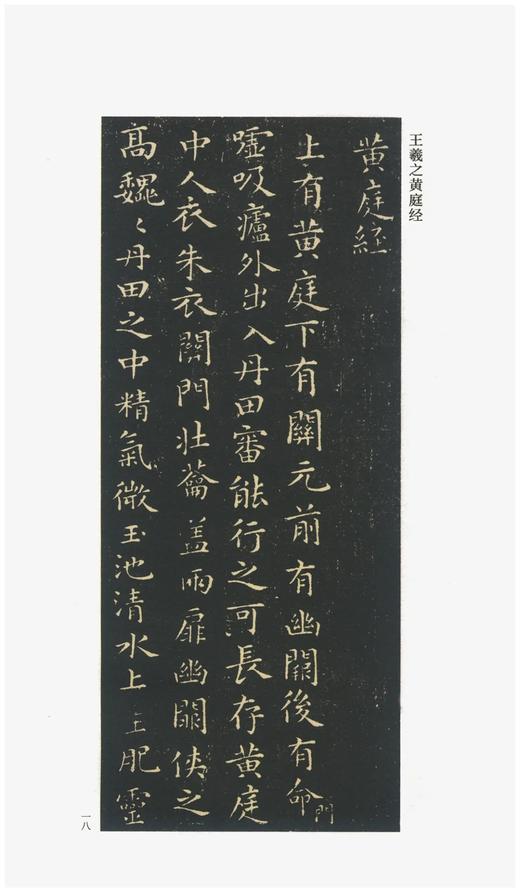 王羲之黄庭经
黄庭経
上有黄庭下有關元前有幽闕後有命門
嘘吸廬外出入丹田審能行之可長存黄庭
中人衣朱衣關門壯蘥盖兩扉幽闕侠之
高魏〻丹田之中精氣微玉池清水上生肥靈
一八